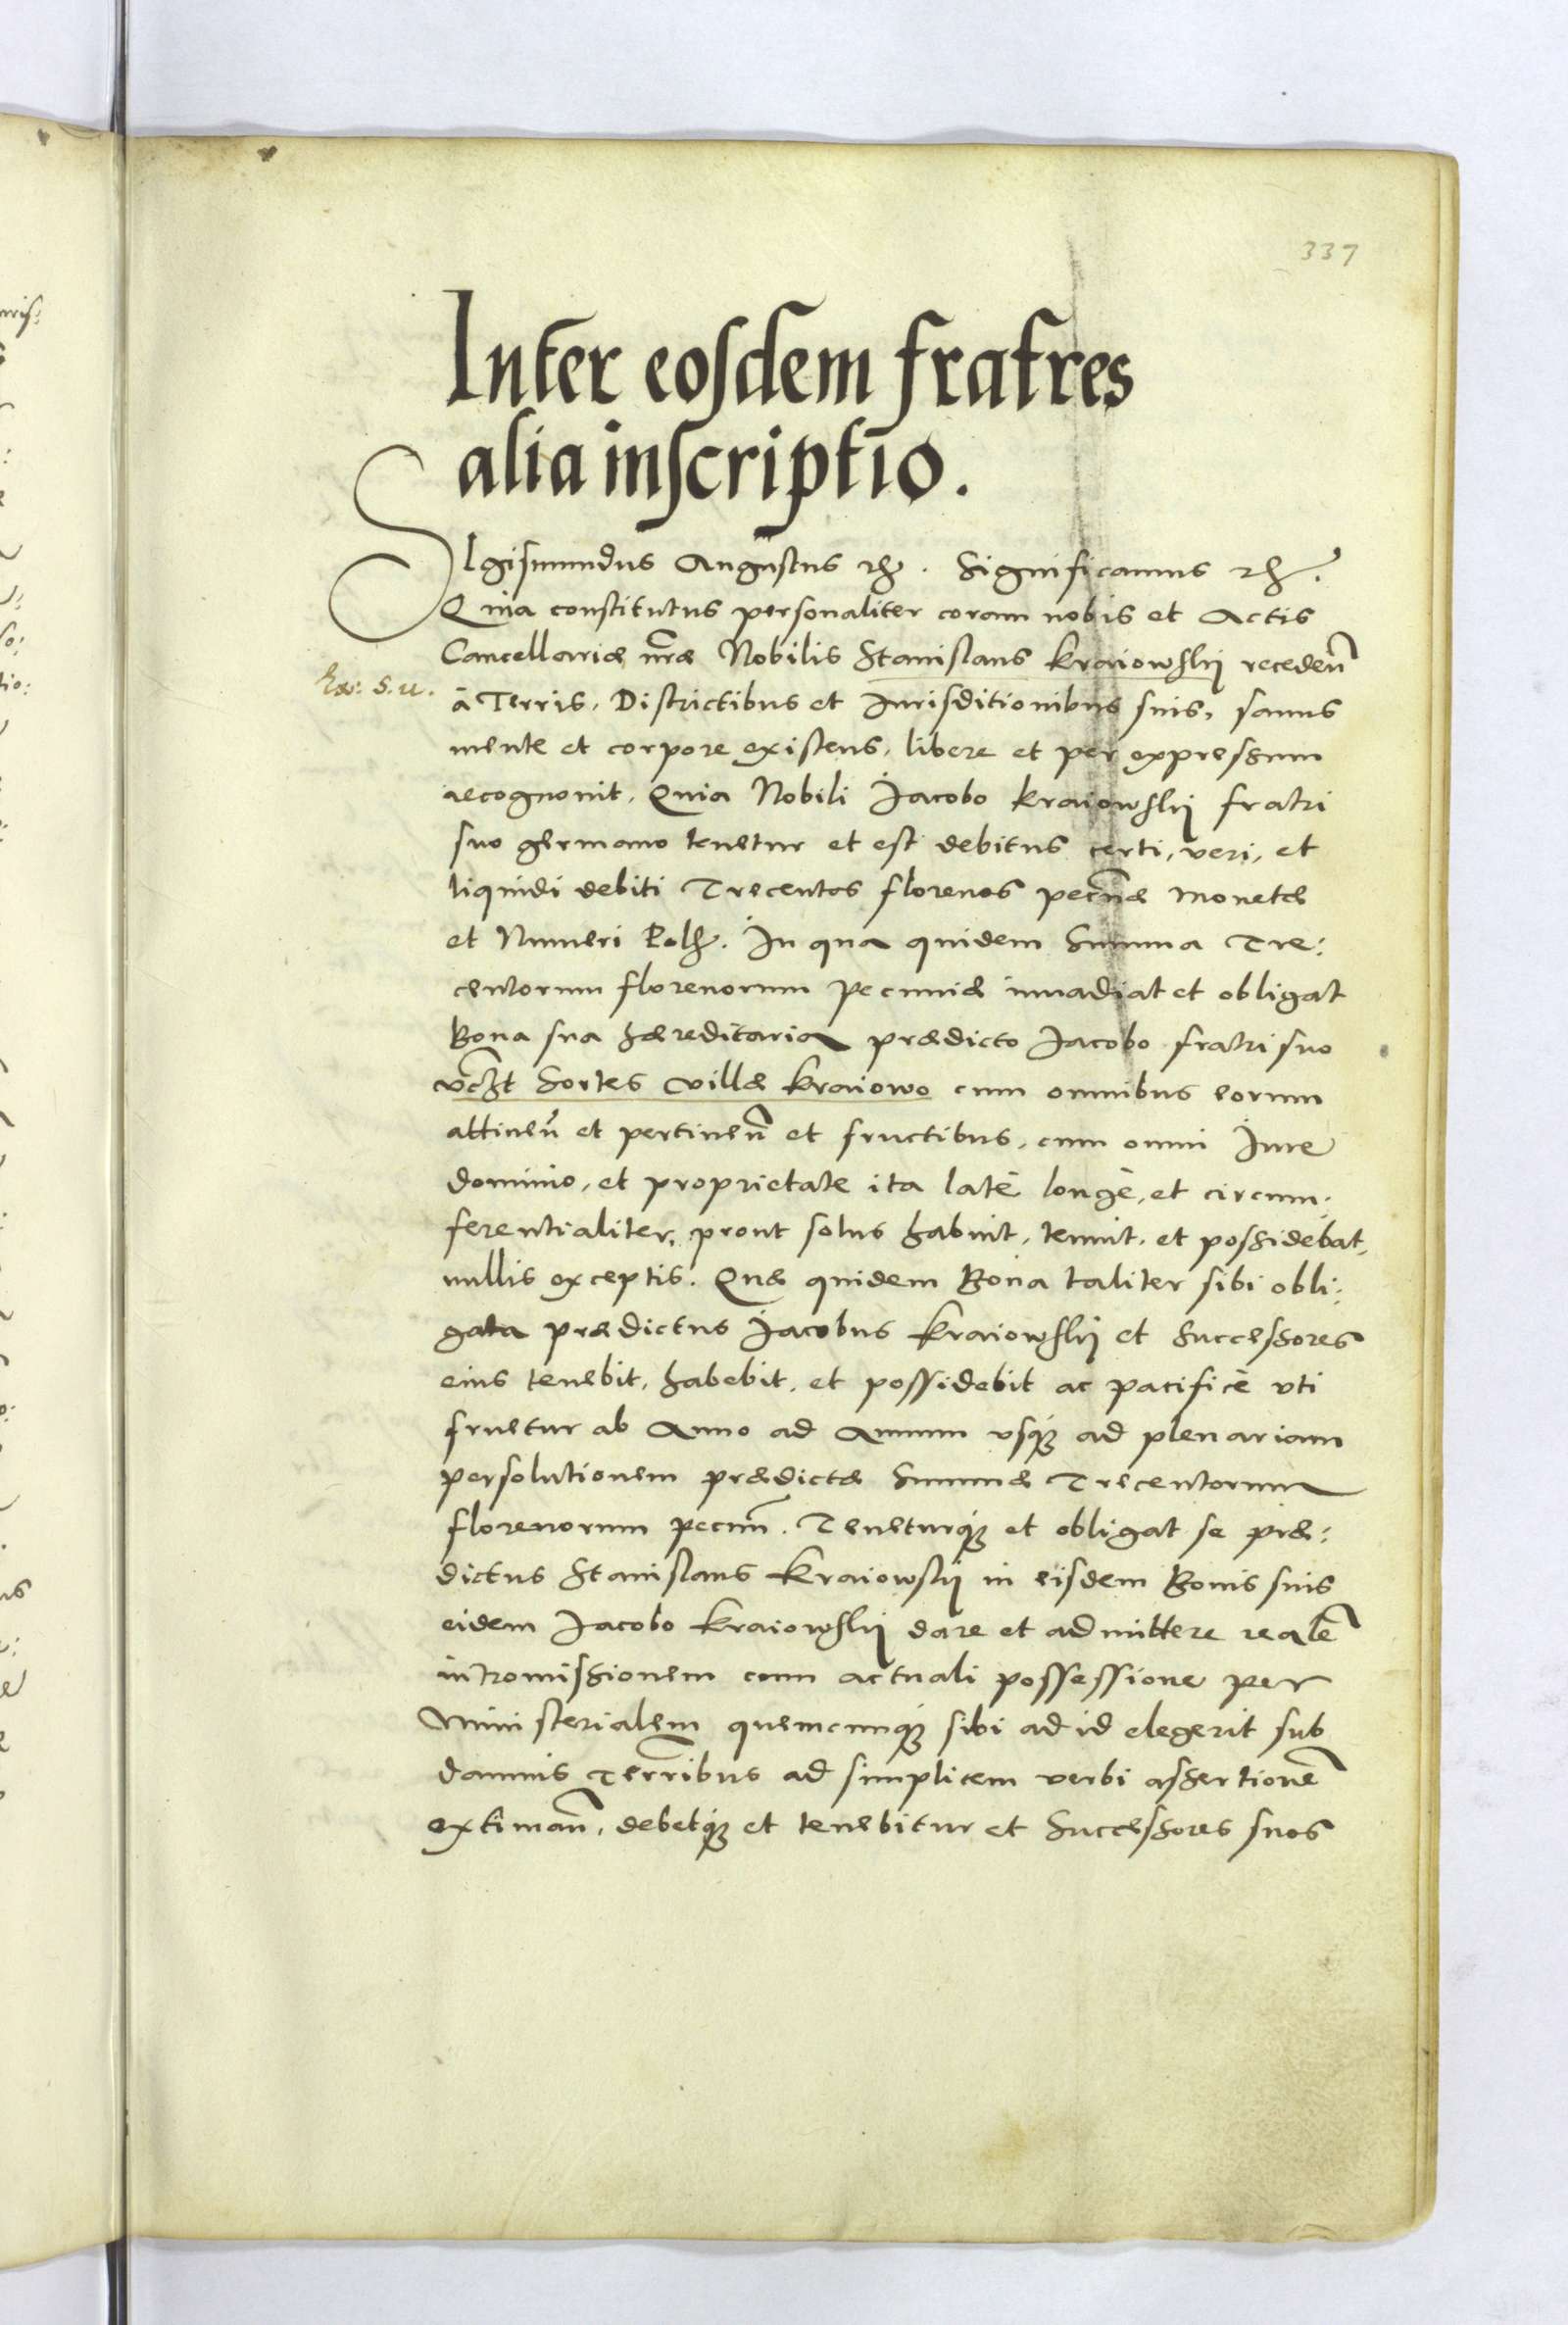 337
Inter eosdem fratres
alia inscriptio.
SIgismundus Augustus etc. Significamus etc.
Quia constitutus personaliter coram nobis et Actis
Cancellariæ nræ Nobilis Stanislaus Kraiowskij receden
à Terris, Districtibus et Iurisditionibus suis, sanus
mente et corpore existens, libere et per expressum
recognouit. Quia Nobili Jacobo Kraiowskij fratri
suo germano tenetur et est debitus certi, veri, et
liquidi debiti Trecentos florenos pecnæ monetæ
et Numeri Pol. In qua quidem Summa Tre:
centorum florenorum pecuniæ inuadiat et obligat
Bona sua hæreditaria prædicto Jacobo fratri suo
vczt Sortes villæ Kraiowo cum omnibus eorum
attinen et pertinen et fructibus, cum omni Iure
dominio, et proprietate ita latè longè, et circum:
ferentialiter, prout solus habuit, tenuit, et possidebat,
nullis exceptis. Quæ quidem Bona taliter sibi obli:
gata prædictus Jacobus Kraiowskij et Successores
eius tenebit, habebit, et possidebit ac pacificè vti
fruetur ab Anno ad Annum vsq3 ad plenariam
persolutionem prædictæ Summæ Trecentorum
florenorum pecun. Teneturq3 et obligat se præ:
dictus Stanislaus Kraiowskij in eisdem Bonis suis
eidem Jacobo Kraiowskij dare et admittere realē
intromissionem cum actuali possessione per
Ministerialem quemcunq3 sibi ad id elegerit sub
damnis Terribus ad simplicem verbi assertionē
extiman, debetq3 et tenebitur et Successores suos